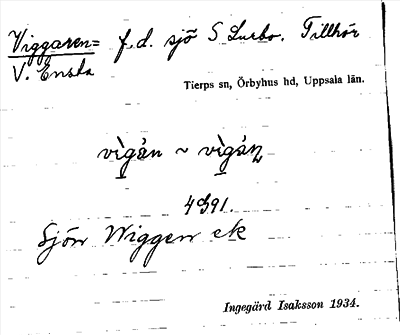 Viggaren= f.d. sjö S Lurbo. Tillhör
V. Ensta
Tierps sn, Örbyhus hd, Uppsala län.
vìgàn ~ vìgàn
4991.
Sjön Wiggen ek
Ingegärd Isaksson 1934.